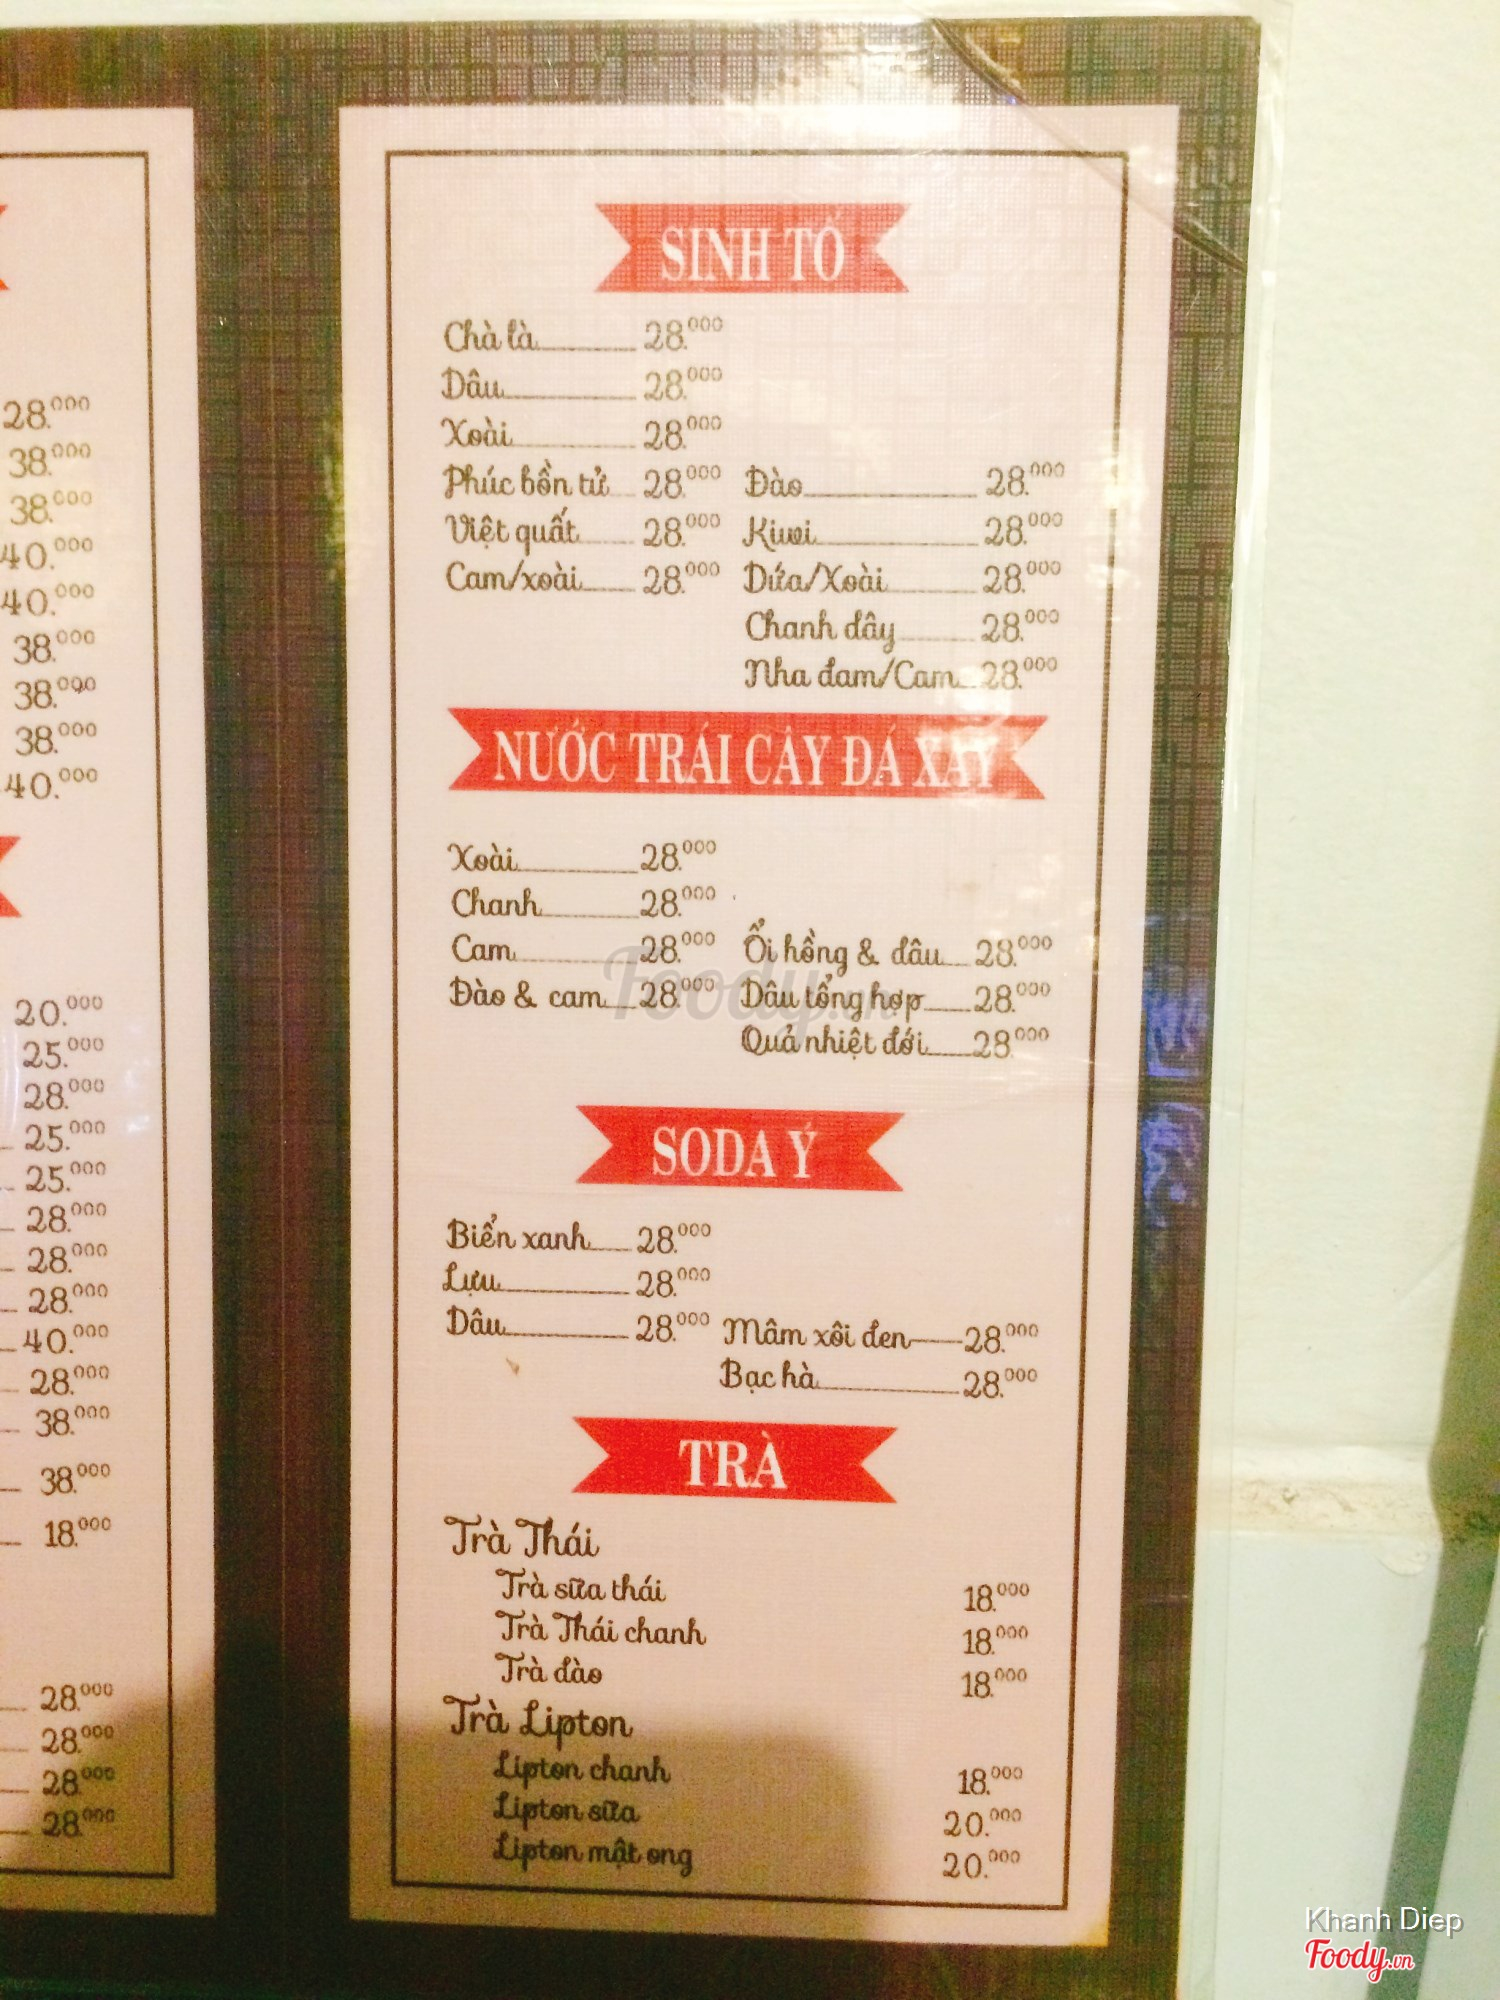 28.000
38.000
38.000
40.000
40.000
38.000
38.000
38.000
40.000
20.000
25.000
28.000
25.000
25.000
28.000
28.000
28.000
40.000
28.000
38.000
38.000
18.000
28.000
28.000
28.000
28.000
SINH TỐ
Chà là 28.000
Dâu 28.000
Xoài 28.000
Phúc bồn tử 28.000
Việt quất 28.000
Cam/xoài 28.000
Đào 28.000
Kiwi 28.000
Dứa/Xoài 28.000
Chanh dây 28.000
Nha đam/Cam 28.000
NƯỚC TRÁI CÂY ĐÁ XAY
Xoài 28.000
Chanh 28.000
Cam 28.000
Đào & cam 28.000
Ổi hồng & dâu 28.000
Dâu tổng hợp 28.000
Quả nhiệt đới 28.000
SODA Ý
Biển xanh 28.000
Lựu 28.000
Dâu 28.000
Mâm xôi đen 28.000
Bạc hà 28.000
TRÀ
Trà Thái
Trà sữa thái 18.000
Trà Thái chanh 18.000
Trà đào 18.000
Trà Lipton
Lipton chanh 18.000
Lipton sữa 20.000
Lipton mật ong 20.000
Foody.vn
Khanh Diep
Foody.vn